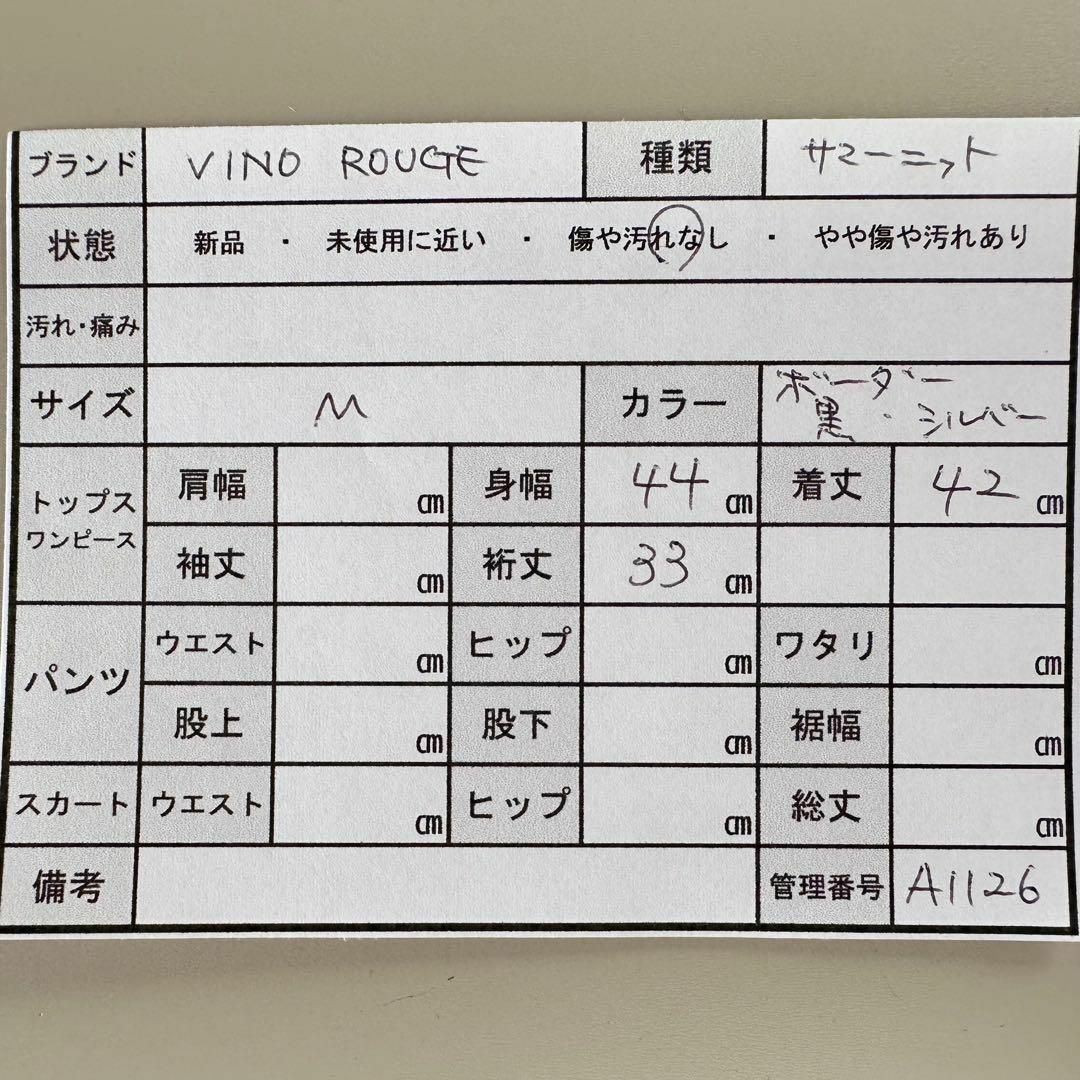 ブランド VINO ROUGE 種類 サマーニット
状態 新品 ・ 未使用に近い ・ 傷や汚れなし ・ やや傷や汚れあり
汚れ・痛み
サイズ M カラー ボーダー
黒・シルバー
トップス
ワンピース
肩幅 cm 身幅 44 cm 着丈 42 cm
袖丈 cm 裄丈 33 cm
パンツ
ウエスト cm ヒップ cm ワタリ cm
股上 cm 股下 cm 裾幅 cm
スカート ウエスト cm ヒップ cm 総丈 cm
備考 管理番号 A1126